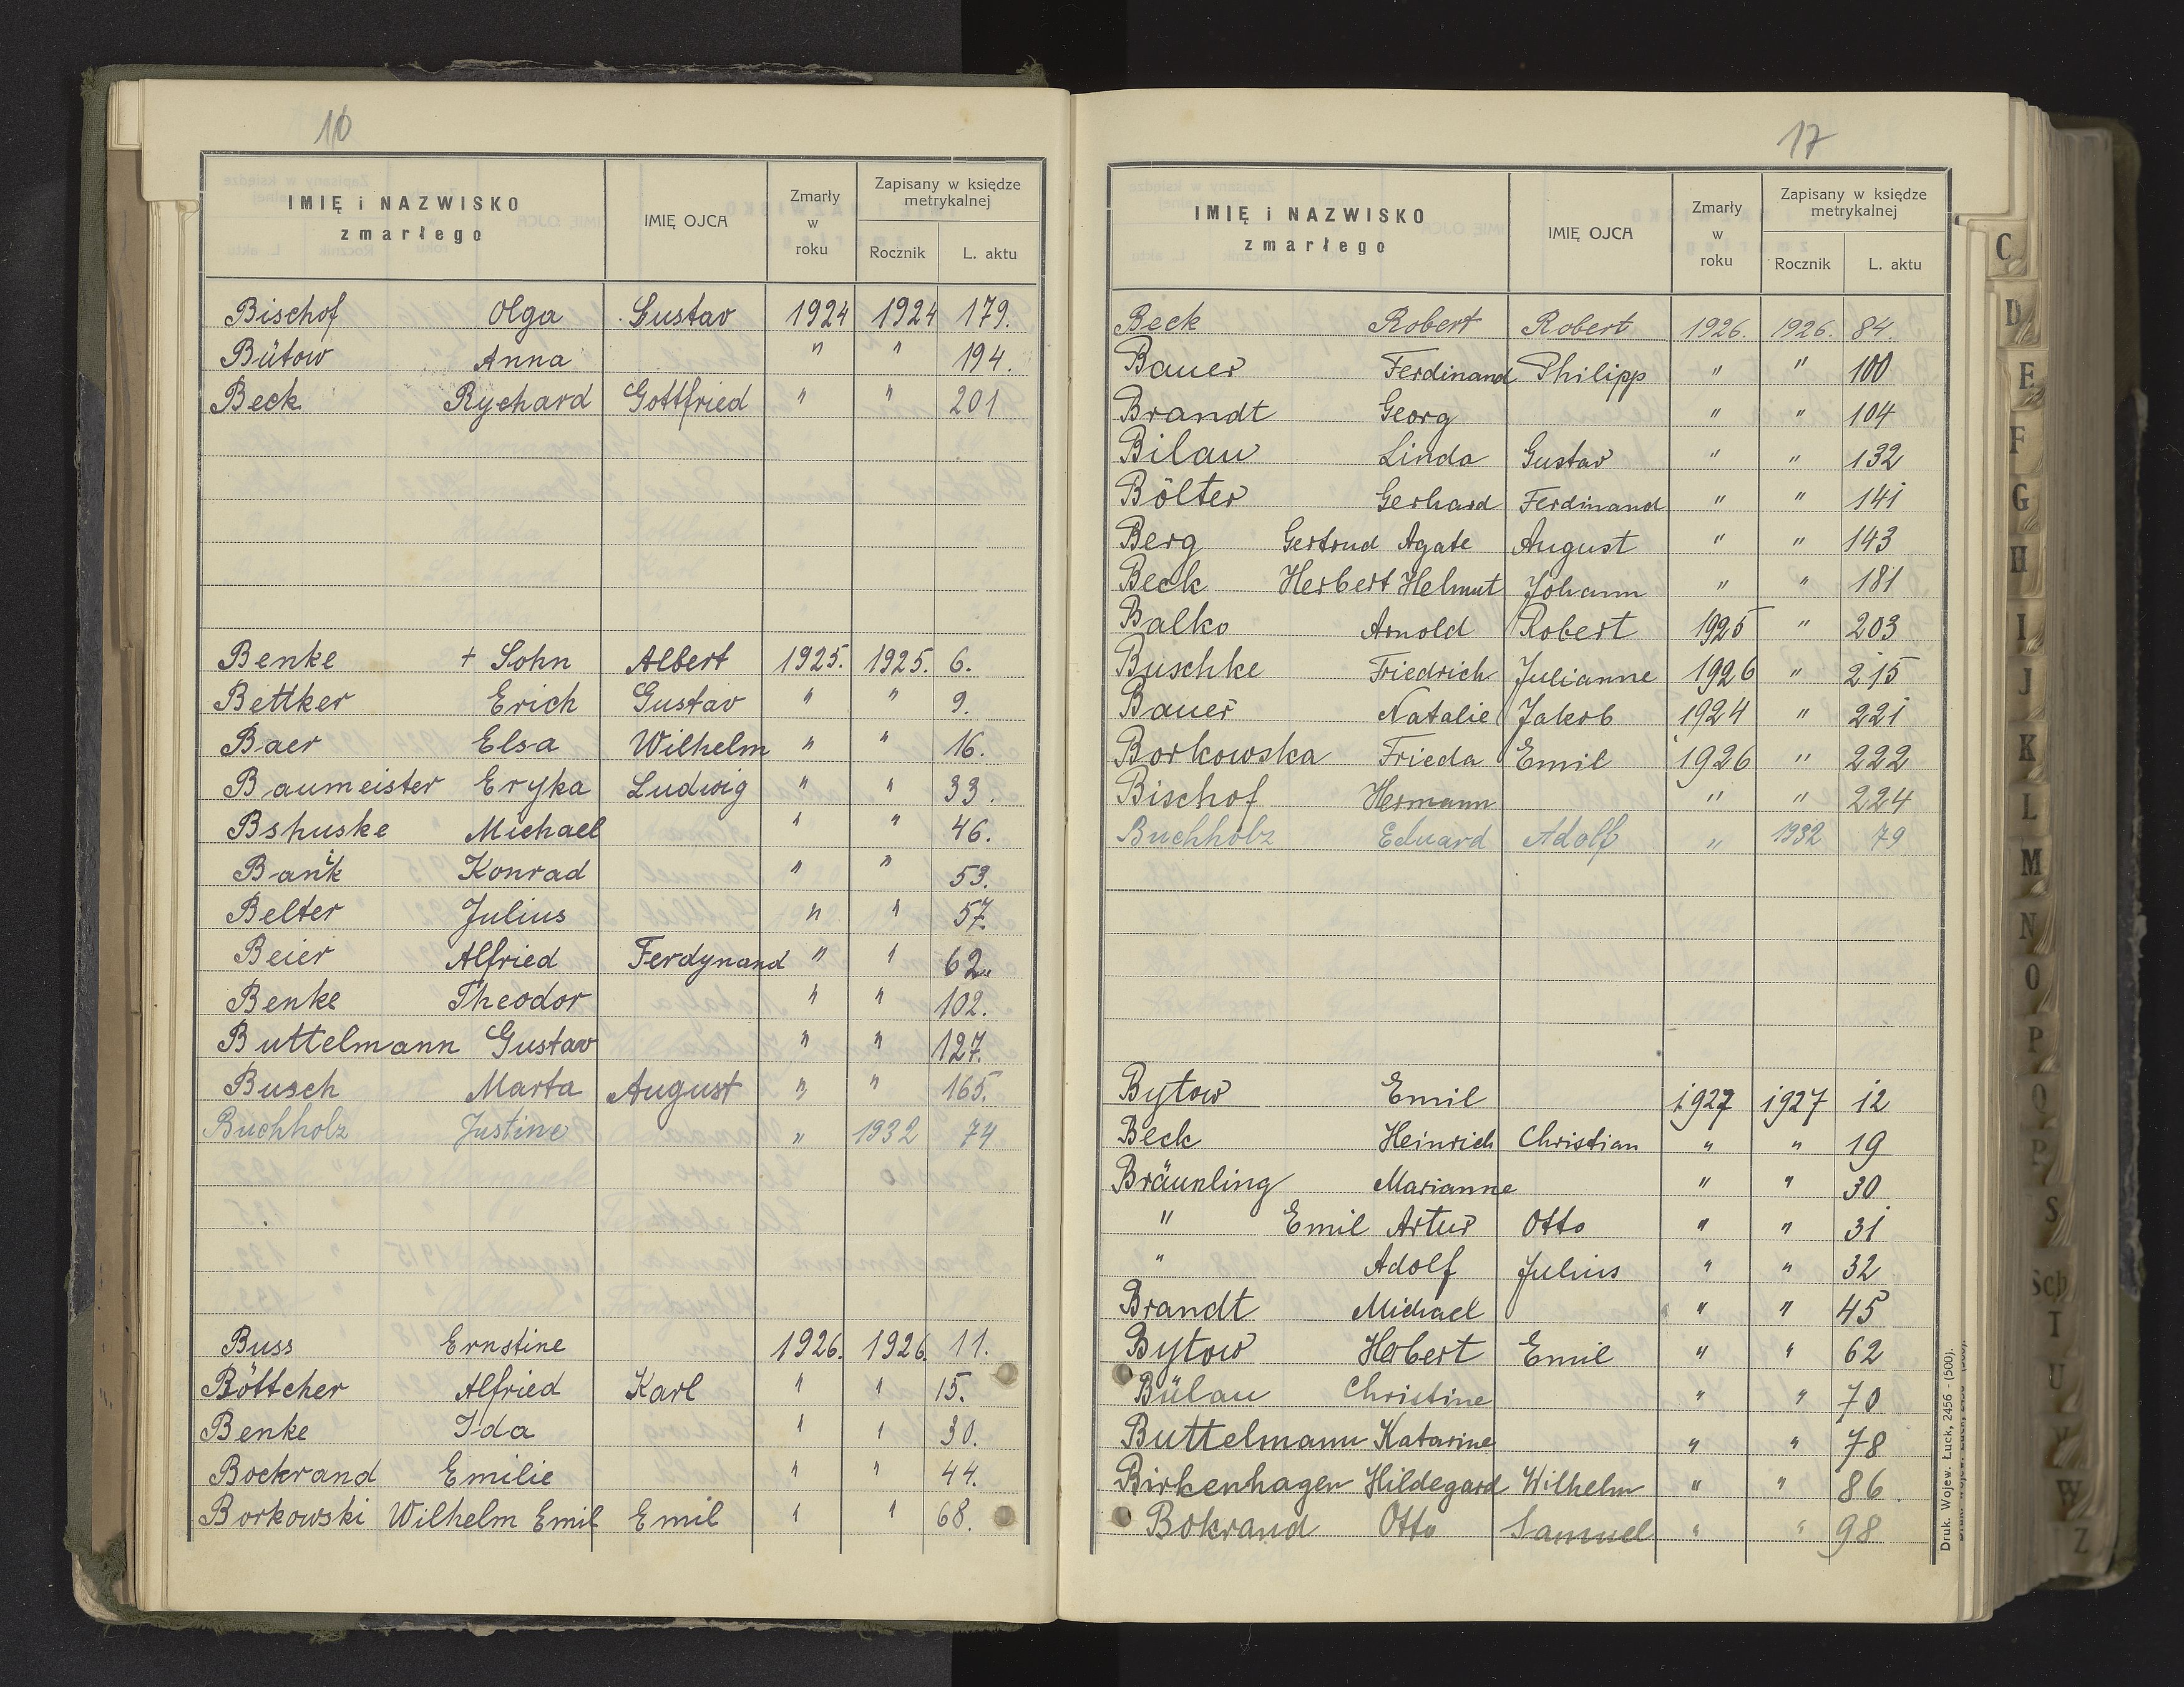 16
IMIĘ i NAZWISKO zmarłego | IMIĘ OJCA | Zmarły w roku | Zapisany w księdze metrykalnej
Rocznik | L. aktu
Bischof Olga | Gustav | 1924 | 1924 | 179.
Bütow Anna | | " | " | 194.
Beck Rychard | Gottfried | " | " | 201
Benke + Sohn | Albert | 1925. | 1925. | 6.
Bettker Erich | Gustav | " | " | 9.
Baer Elsa | Wilhelm | " | " | 16.
Baumeister Eryka | Ludwig | " | " | 33.
Bshuske Michael | | " | " | 46.
Banik Konrad | | " | " | 53.
Belter Julius | | " | " | 57.
Beier Alfried | Ferdynand | " | " | 62.
Benke Theodor | | " | " | 102.
Buttelmann Gustav | | " | " | 127.
Busch Marta | August | " | " | 165.
Buchholz Justine | | " | 1932 | 74
Buss Ernstine | | 1926. | 1926. | 11.
Böttcher Alfried | Karl | " | " | 15.
Benke Ida | | " | " | 30.
Bockrand Emilie | | " | " | 44.
Borkowski Wilhelm Emil | Emil | " | " | 68.
17
IMIĘ i NAZWISKO zmarłego | IMIĘ OJCA | Zmarły w roku | Zapisany w księdze metrykalnej
Rocznik | L. aktu
Beck Robert | Robert | 1926. | 1926. | 84.
Bauer Ferdinand | Philipp | " | " | 100
Brandt Georg | | " | " | 104
Bilau Linda | Gustav | " | " | 132
Bölter Gerhard | Ferdinand | " | " | 141
Berg Gertrud Agate | August | " | " | 143
Beck Herbert Helmut | Johann | " | " | 181
Balko Arnold | Robert | 1925 | " | 203
Buschke Friedrich | Julianne | 1926 | " | 215
Bauer Natalie | Jakob | 1924 | " | 221
Borkowska Frieda | Emil | 1926 | " | 222
Bischof Hermann | | " | " | 224
Buchholz Eduard | Adolf | " | 1932 | 79
Bytow Emil | | 1927 | 1927 | 12
Beck Heinrich | Christian | " | " | 19
Bräunling Marianne | | " | " | 30
" Emil Artur | Otto | " | " | 31
" Adolf | Julius | " | " | 32
Brandt Michael | | " | " | 45
Bytow Herbert | Emil | " | " | 62
Bülau Christine | | " | " | 70
Buttelmann Katarine | | " | " | 78
Birkenhagen Hildegard | Wilhelm | " | " | 86.
Bokrand Otto | Samuel | " | " | 98
Druk. Wojew. Łuck, 2456 - (500).
C
D
E
F
G
H
I
J
K
L
M
N
O
P
S
Sch
U
W
Z